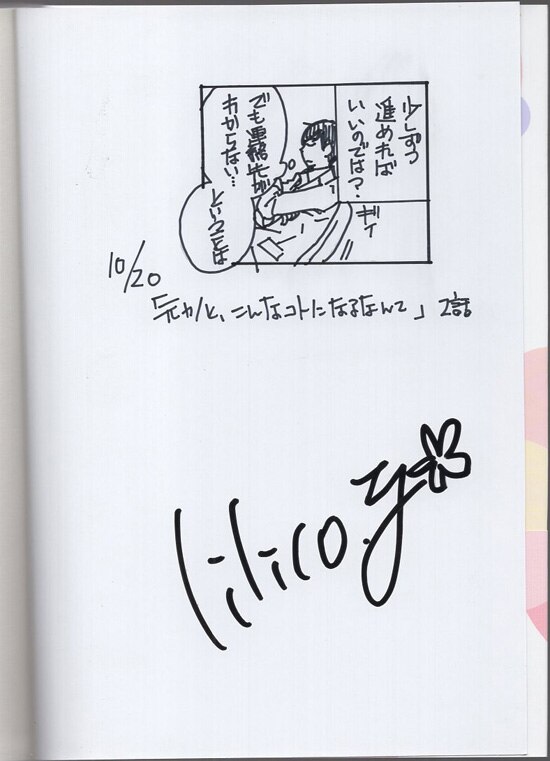 少しずつ
進めれば
いいのでは?
ギィ
でも連絡先が
わからない…
ということは
10/20
「元カノと、こんなコトになるなんて」2話
lilico.y